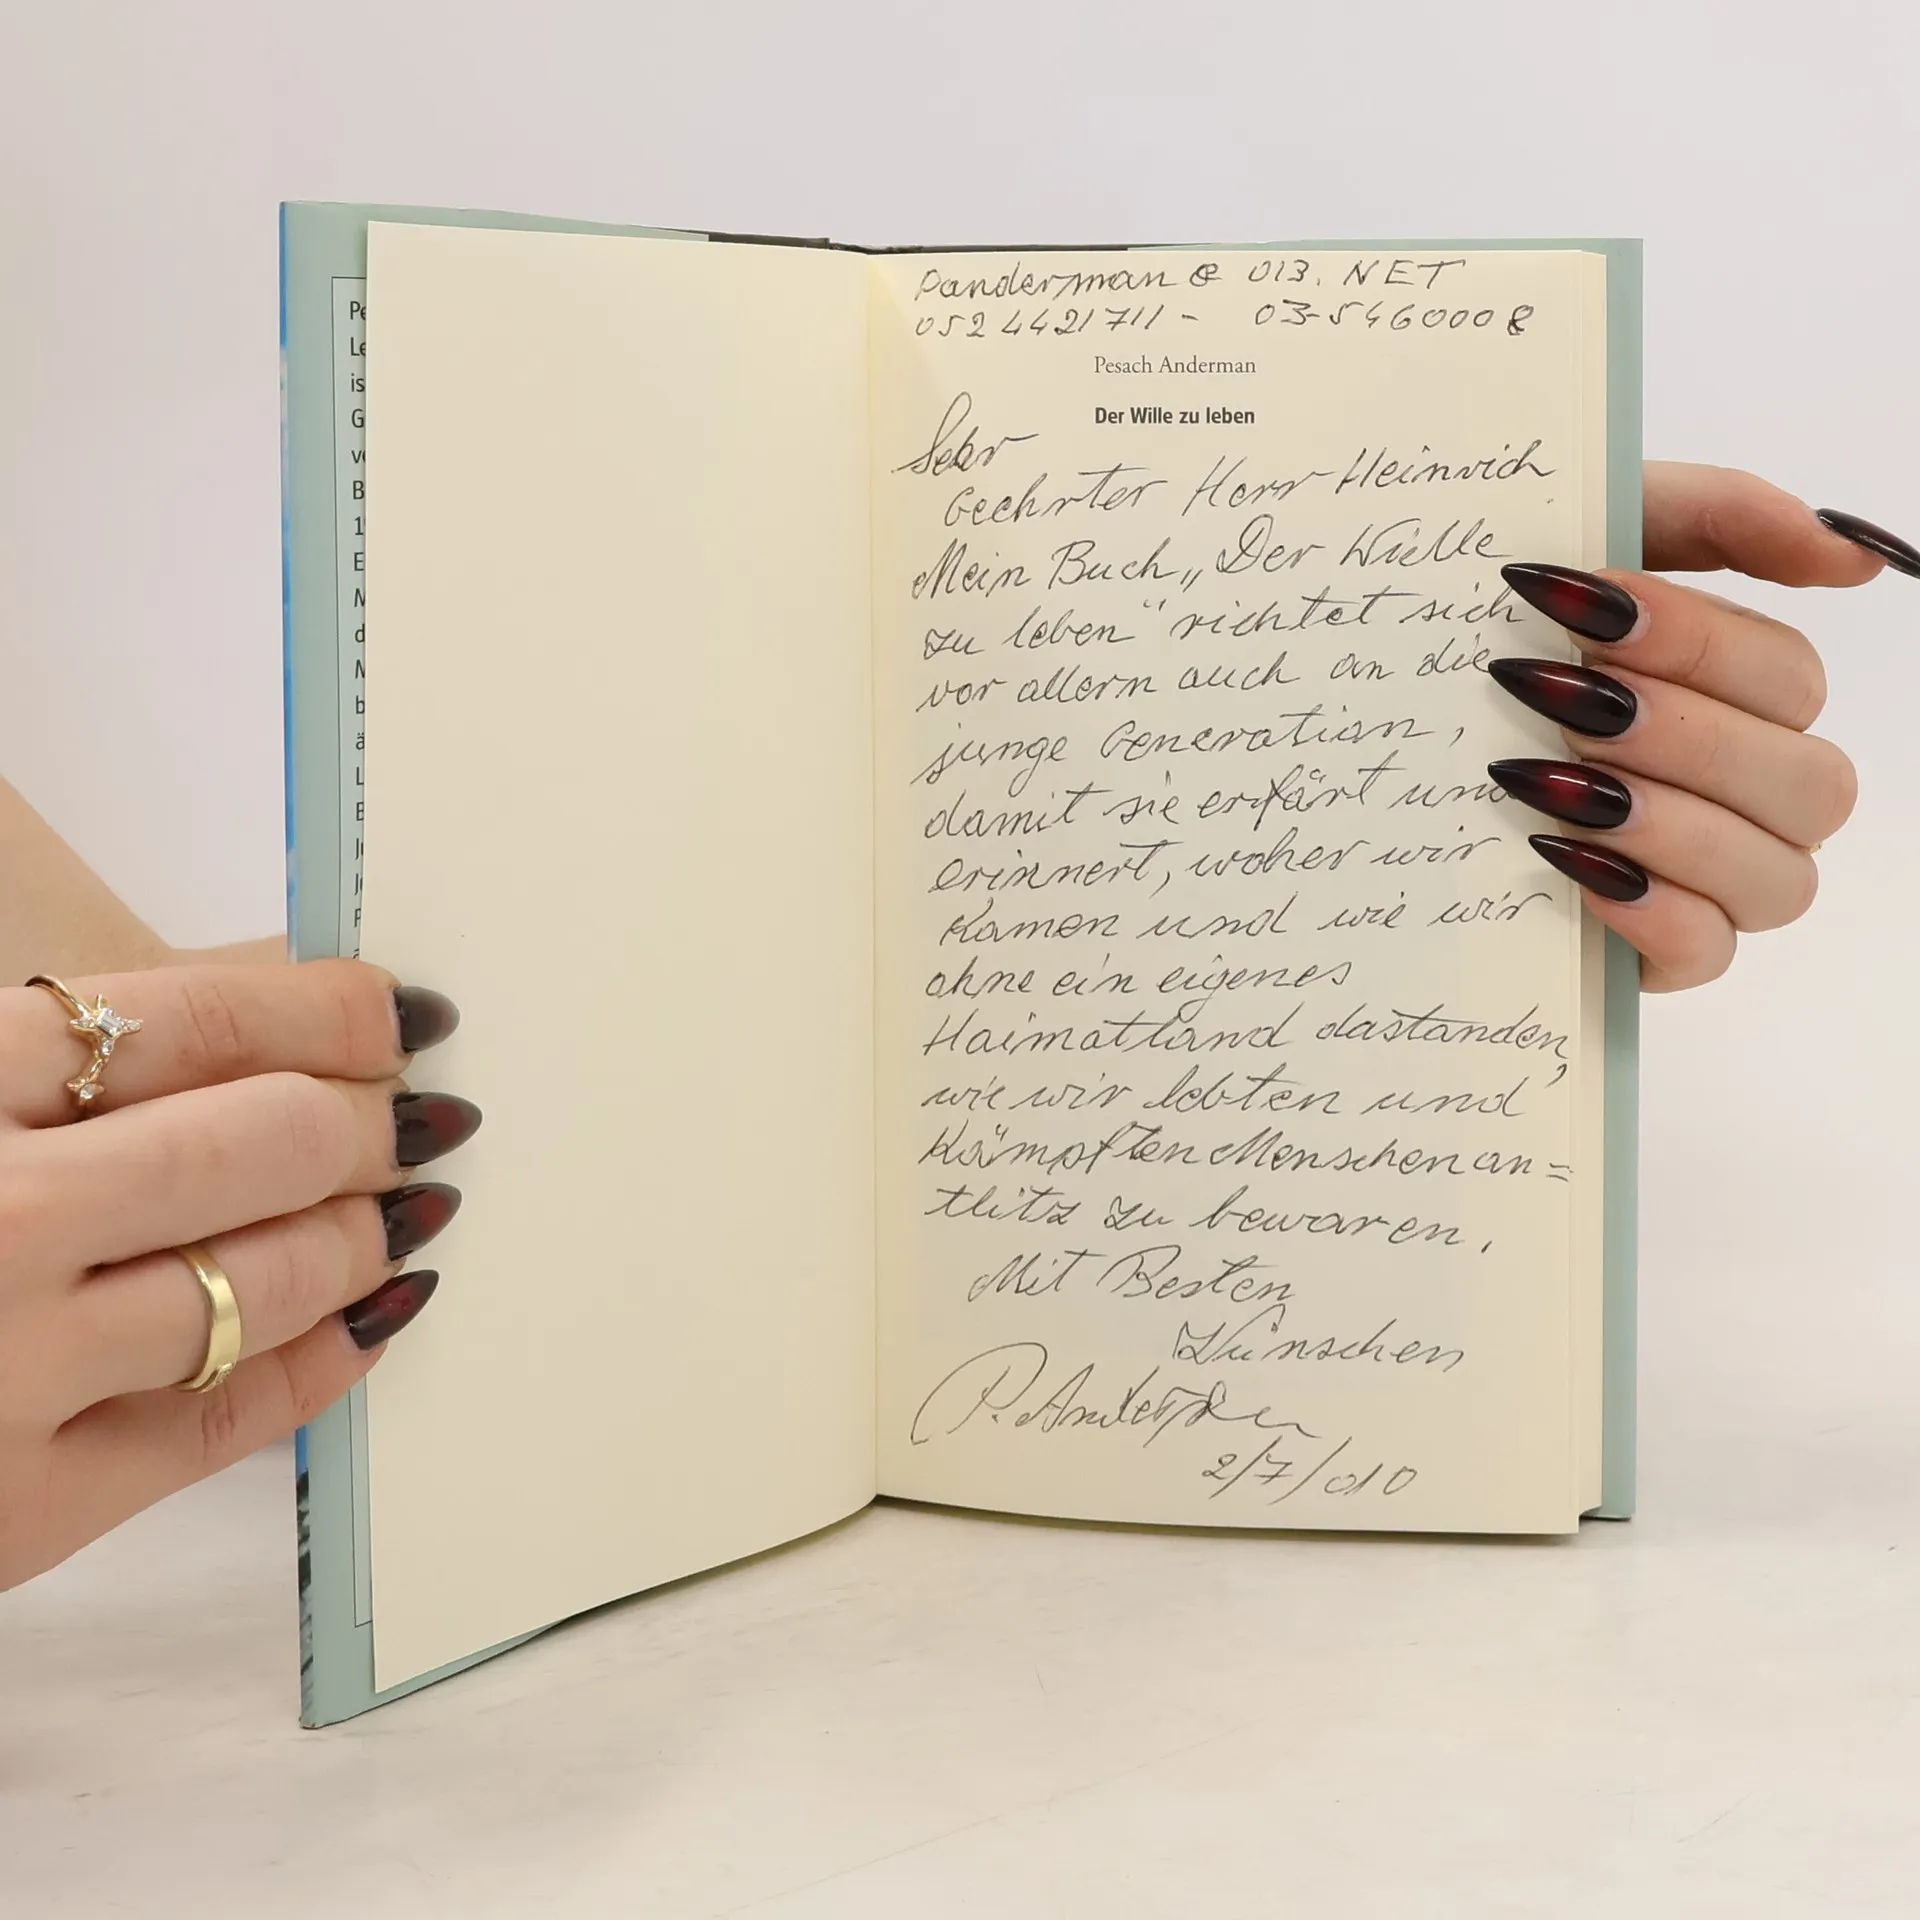 Pe
Le
is
G
ve
B
19
E
M
d
M
b
ä
L
B
Ju
Ju
P
a
Panderman @ 013. NET
052 4421711 - 03-5460008
Pesach Anderman
Der Wille zu leben
Sehr
Geehrter Herr Heinrich
Mein Buch „Der Wielle
zu leben" richtet sich
vor allem auch an die
junge Generation,
damit sie erfärt und
erinnert, woher wir
Kamen und wie wir
ohne ein eigenes
Haimatland dastanden,
wie wir lebten und
Kämpften Menschen an=
tlitz zu bewaren.
Mit Besten
Wünschen
P. Anderman
2/7/010